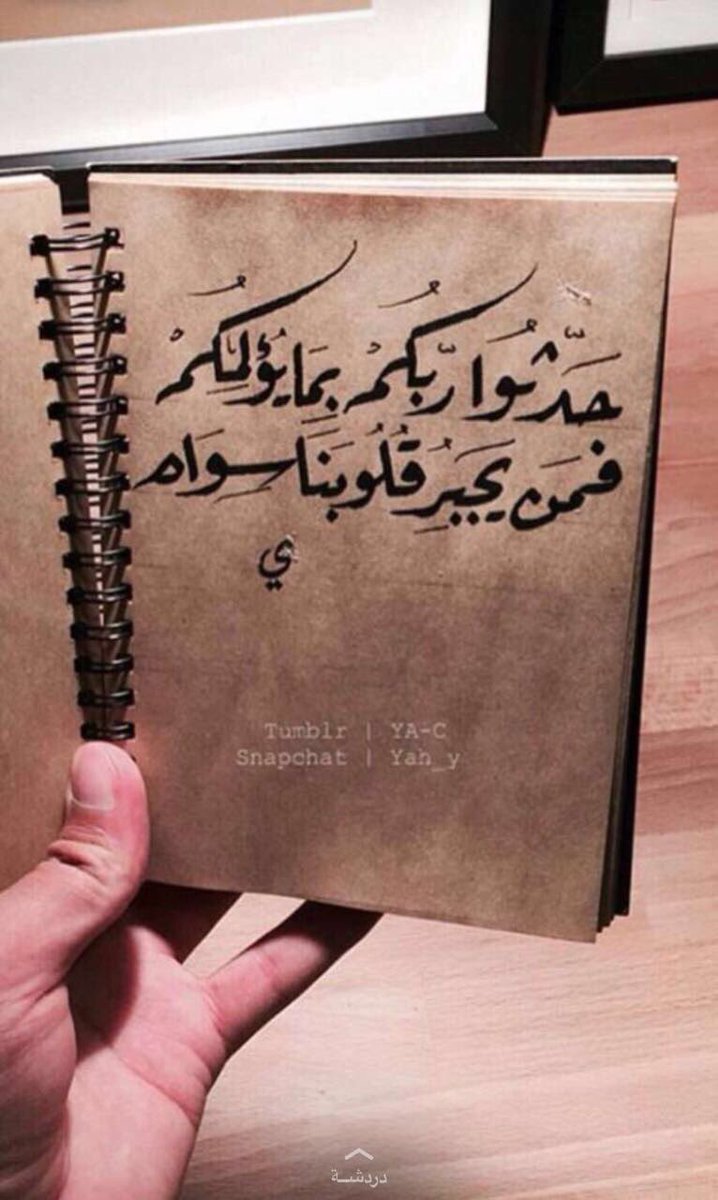 حَدِّثُوا رَبَّكُمْ بِمَا يُؤْلِمُكُمْ
فَمَن يَجبُرِ قُلُوبَنَا سِوَاه
ي
Tumblr | YA-C
Snapchat | Yah_y
دردشــة